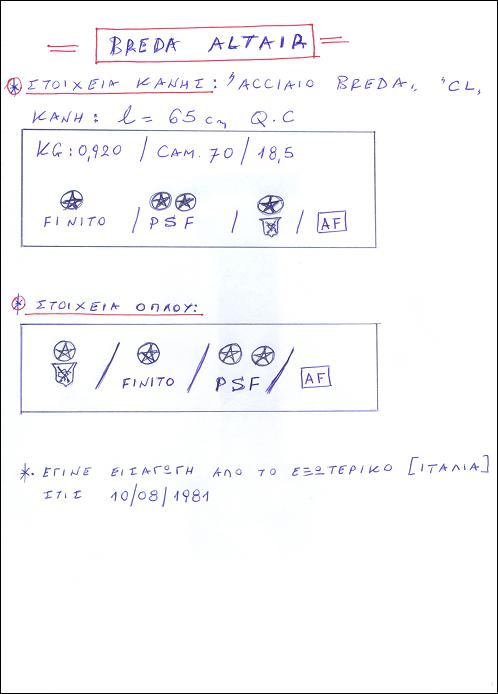 = BREDA ALTAIR =
* ΣΤΟΙΧΕΙΑ ΚΑΝΗΣ: "ACCIAIO BREDA", "CL,
ΚΑΝΗ: l = 65 cm, Q.C
KG: 0,920 / CAM. 70 / 18,5
FINITO / PSF / / AF
* ΣΤΟΙΧΕΙΑ ΟΠΛΟΥ:
/ FINITO / PSF / AF
*. ΕΓΙΝΕ ΕΙΣΑΓΩΓΗ ΑΠΟ ΤΟ ΕΞΩΤΕΡΙΚΟ [ΙΤΑΛΙΑ]
ΣΤΙΣ 10/08/1981